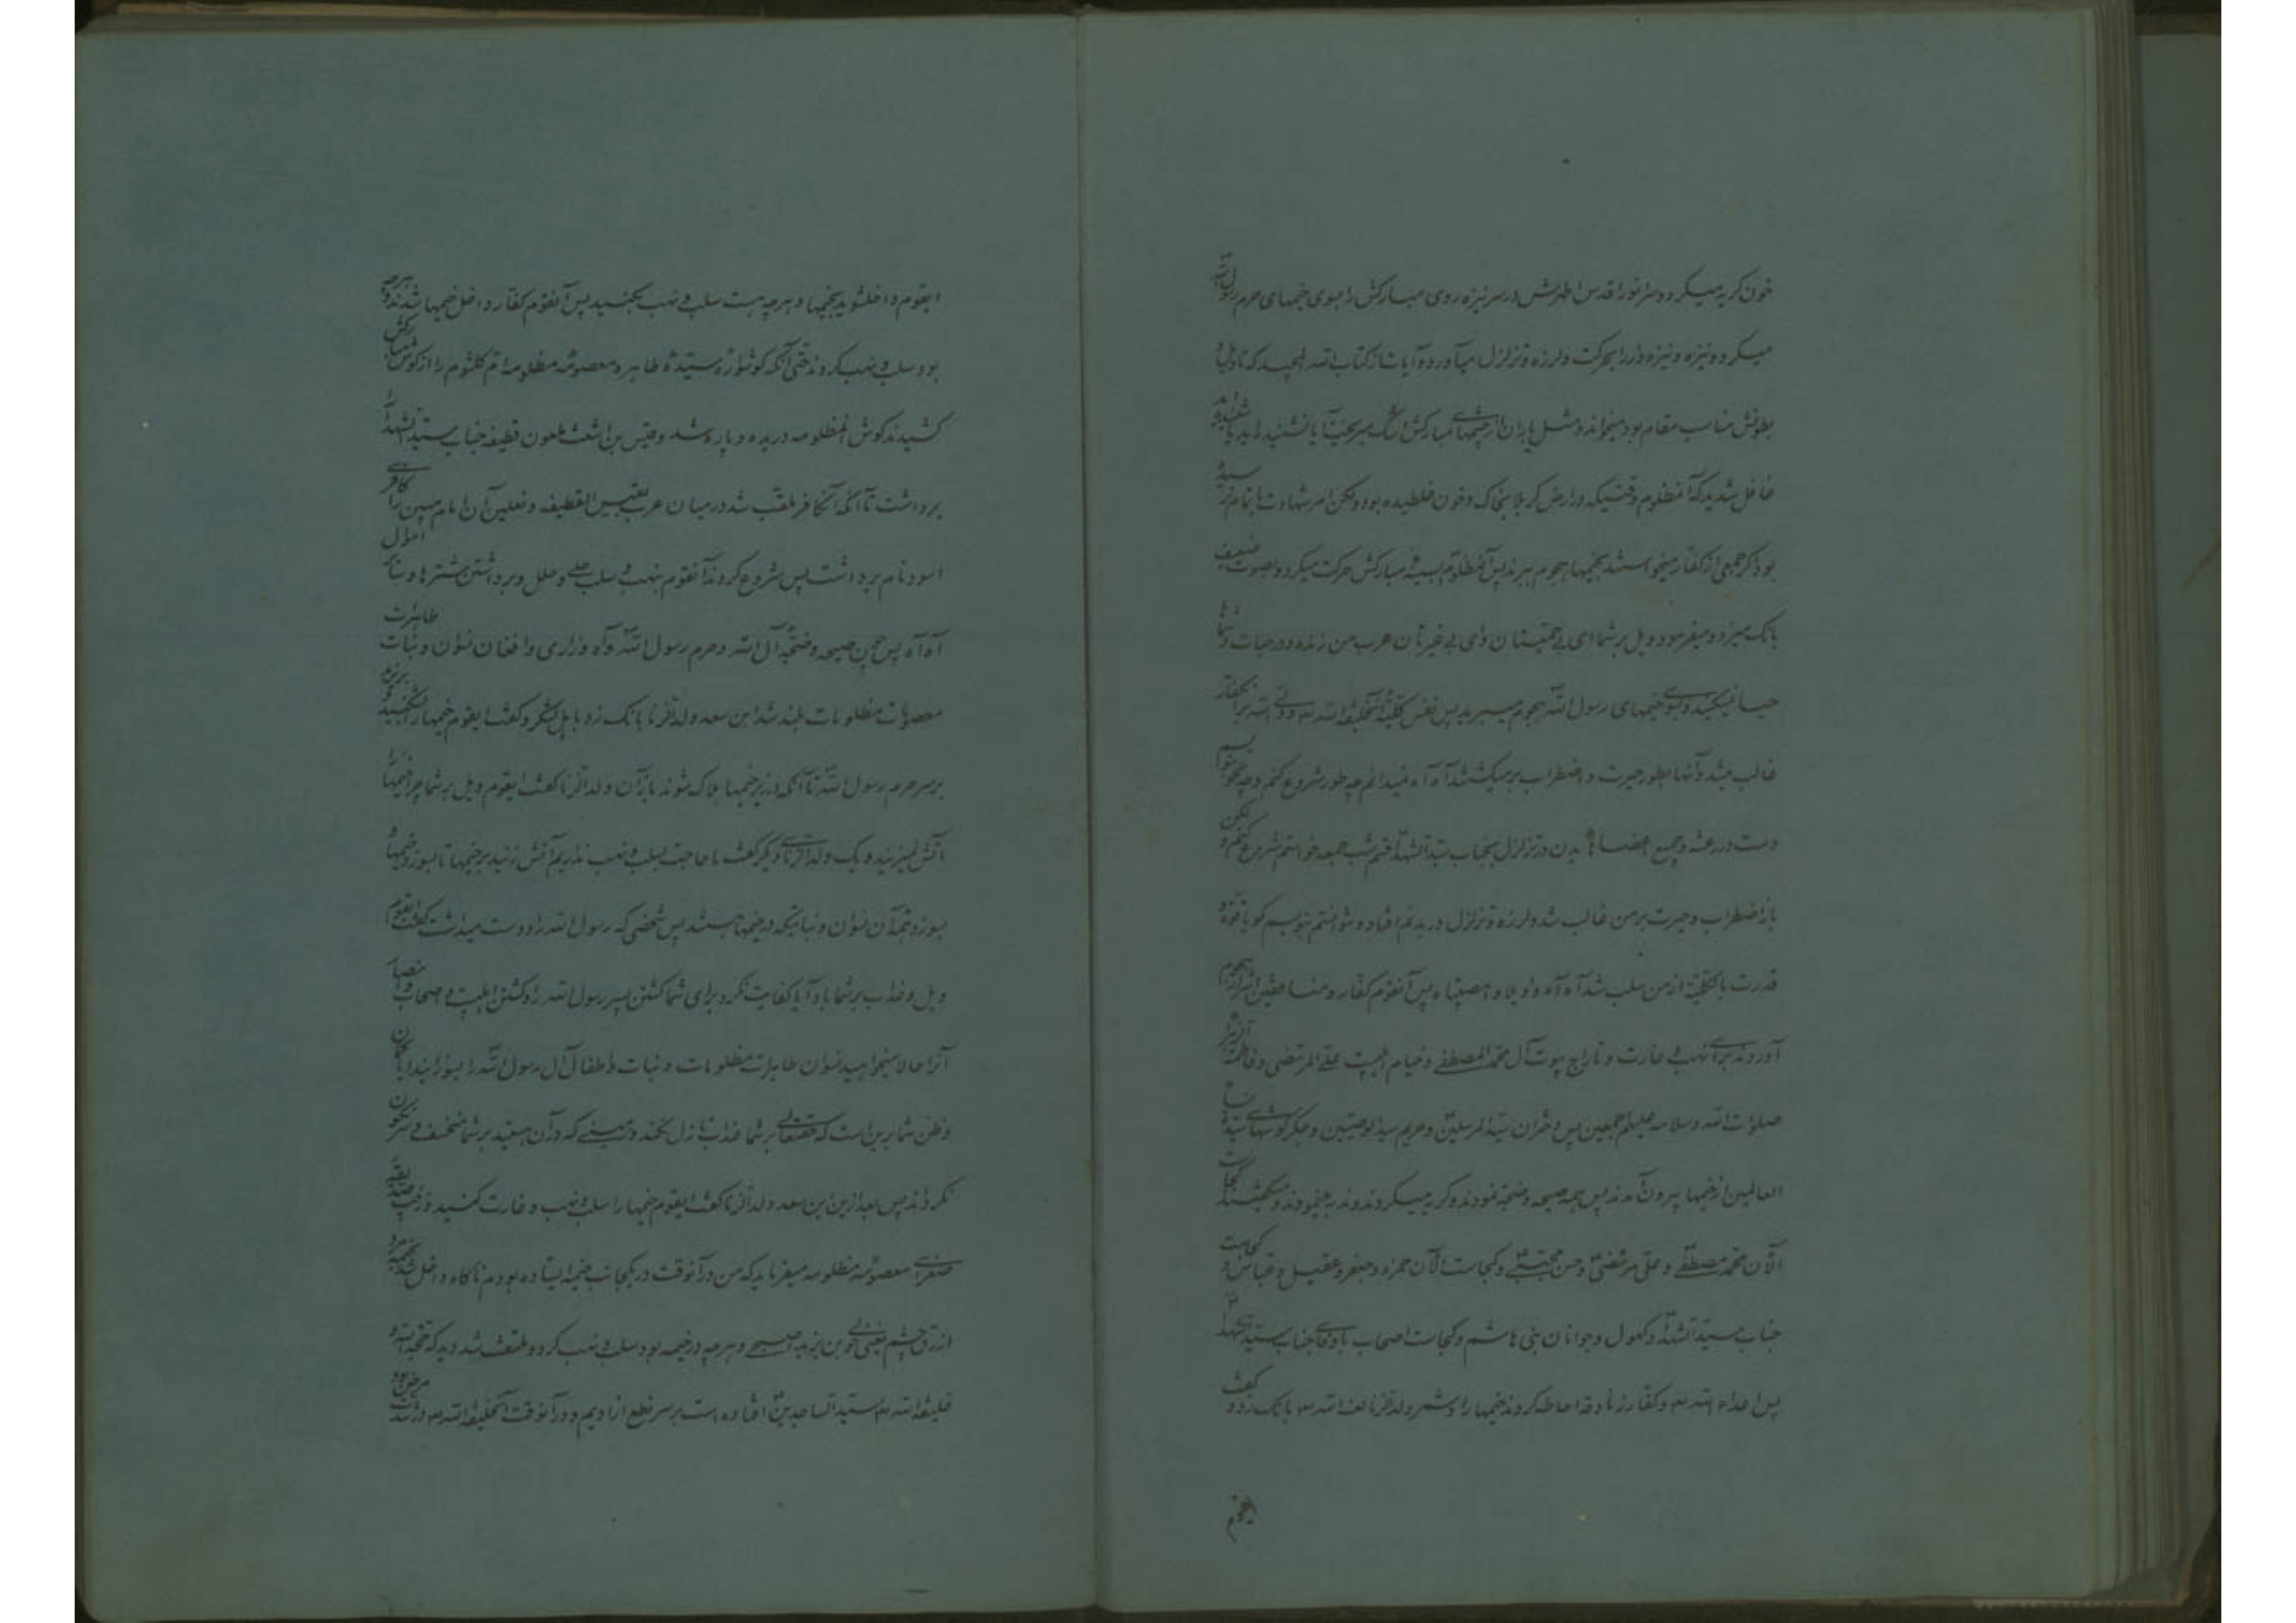 خون گریه میکرد و سر انور اقدس اطهرش در سر نیزه روی مبارکش را بسوی خیمهای حرم رسول الله
میکرد و نیزه و نیزه دار را بحرکت و لرزه و تزلزل میآورد و آیات از کتاب الله المجید که تاویل و
بطونش مناسب مقام بود میخواند و مثل باران از چشمهای مبارکش اشک میریخت آیا نشنیده اید یا شنیده اید
غافل شدید که آنمظلوم وقتیکه در ارض کربلا بخاک و خون غلطیده بود و لکن امر شهادت باتمام نرسیده
بود که جمعی از کفار میخواستند بخیمها هجوم ببرند پس آنمظلوم بسینه مبارکش حرکت میکرد و بصوت ضعیف
بانک میزد و میفرمود ویل بر شما ای بی حمیتان و ای بی غیرتان عرب من زنده و در حیات و شما
حیا نمیکنید و بسوی خیمهای رسول الله هجوم میبرید پس نفس کلیه آنخلیفة الله بر آنکفار
غالب میشد و آنها بطور حیرت و اضطراب برمیکشتند آه آه نمیدانم چه طور شروع کنم و چه بنویسم
دست در رعشه و جمیع اعضاء بدن در تزلزل بجناب سید الشهداء قسم شب جمعه خواستم شروع کنم و لکن
باز اضطراب و حیرت بر من غالب شد و لرزه و تزلزل در بدنم افتاده نتوانستم بنویسم کویا قوه و
قدرت بالکلیة از من سلب شد آه آه واویلا وا مصیبتا پس آنقوم کفار و منافقین اشرار هجوم
آوردند برای نهب و غارت و تاراج بیوت آل محمد المصطفی و خیام اهلبیت علی المرتضی و فاطمة الزهرا
صلوات الله و سلامه علیهم اجمعین پس دختران سید المرسلین و حریم سید الوصیین و جکر کوشهای سیدة نساء
العالمین از خیمها بیرون آمدند پس همه صیحه و ضجه نمودند و کریه میکردند و ندبه مینمودند و میکفتند کجاست
الآن محمد مصطفی و علی مرتضی و حسن مجتبی و کجاست الآن حمزه و جعفر و عقیل و عباس و کجاست
جناب سید الشهداء و کهول و جوانان بنی هاشم و کجاست اصحاب با وفای جناب سید الشهداء
پس اعداء الله و کفار زنادقه احاطه کردند خیمها را و شمر ولد الزنا لعنه الله بانک زد و کفت
ایقوم
ایقوم داخل شوید بخیمها و هرچه هست سلب و نهب بکنید پس آنقوم کفار داخل خیمها شدند و هرچه
بود سلب و نهب کردند حتی آنکه کوشواره سیده طاهره معصومه مظلومه ام کلثوم را از کوش مبارکش
کشیدند کوش آنمظلومه دریده و پاره شد و قیس بن اشعث ملعون قطیفه جناب سید الشهداء را
برداشت تا آنکه آنکافر ملقب شد در میان عرب بقیس القطیفه و نعلین آن امام مبین را کافری
اسود نام برداشت پس شروع کردند آنقوم بنهب و سلب حلی و حلل و برداشتن شترها و سائر اموال
آه آه پس چون صیحه و ضجه آل الله و حرم رسول الله و آه و زاری و افغان نسوان و بنات طاهرات
معصومات مظلومات بلند شد ابن سعد ولد الزنا بانک زد باهل لشکر و کفت ایقوم خیمها را بکنید و بریزید
بر سر حرم رسول الله تا آنکه در زیر خیمها هلاک شوند باز آن ولد الزنا کفت ایقوم ویل بر شما چرا خیمها را
آتش نمیزنید و یک ولد الزنای دیکر کفت ما حاجت بسلب و نهب نداریم آتش زنید بر خیمها تا بسوزد خیمها و
بسوزد همه آن نسوان و بناتیکه در خیمها هستند پس شخصی که رسول الله را دوست میداشت کفت ایقوم
ویل و عذاب بر شما باد آیا کفایت نکرد برای شما کشتن پسر رسول الله را و کشتن اهلبیت و اصحاب و انصار
آنرا حالا میخواهید نسوان طاهرات مظلومات و بنات و اطفال آل رسول الله را بسوزانید
و ظن شما برین است که حقتعالی بر شما عذاب نازل نکند و زمینی که در آن هستید بر شما منخسف و سرنکون
نکرداند پس بعد ازین ابن سعد ولد الزنا کفت ایقوم خیمها را سلب و نهب و غارت کنید و زینب صدیقه
صغرای معصومه مظلومه میفرماید که من در آنوقت در یکجانب خیمه ایستاده بودم ناکاه داخل شد بخیمه مرد
ازرق چشم یعنی خولی بن یزید اصبحی و هرچه در خیمه بود سلب و نهب کرد و ملتفت شد دید که حجة الله و
خلیفة الله سید الساجدین افتاده است بر سر نطع از ادیم و در آنوقت آنخلیفة الله در شدت مرض بود